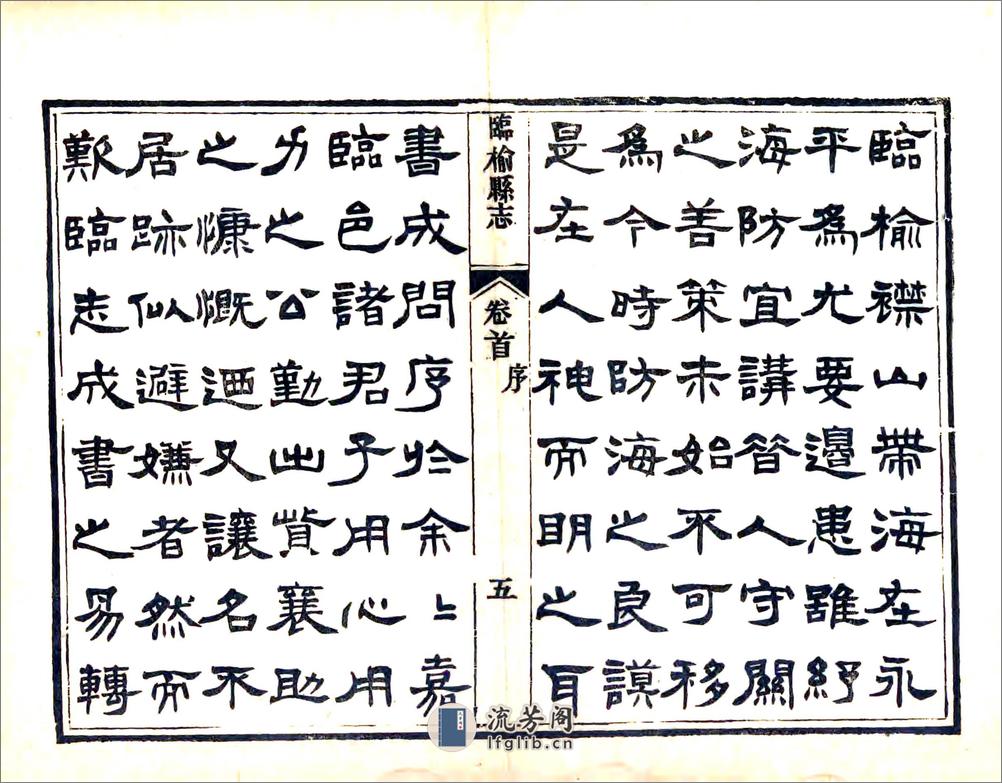 臨榆襟山帶海在永
平爲尤要邊患雖紓
海防宜講昔人守關
之善策未始不可移
爲今時防海之良謨
是在人神而明之耳
臨榆縣志
卷首
序
五
書成問序於余〻嘉
臨邑諸君子用心用
力之公勤出貲襄助
之慷慨迺又讓名不
居跡似避嫌者然而
歎臨志成書之易轉
流芳阁
lfglib.cn